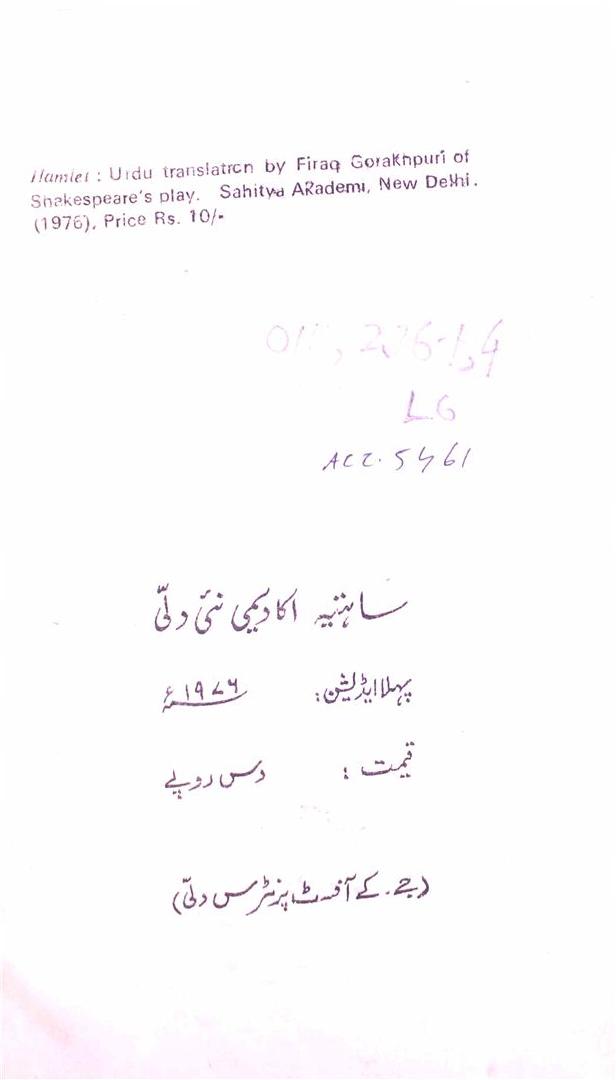 Hamlet : Urdu translation by Firaq Gorakhpuri of
Shakespeare's play. Sahitya Akademi, New Delhi.
(1976), Price Rs. 10/-
LG
Acc. 5461
ساہتیہ اکادیمی نئی دلّی
پہلا ایڈیشن: ۱۹۷۶ء
قیمت : دس روپے
(جے. کے آفسٹ پرنٹرس دلّی)